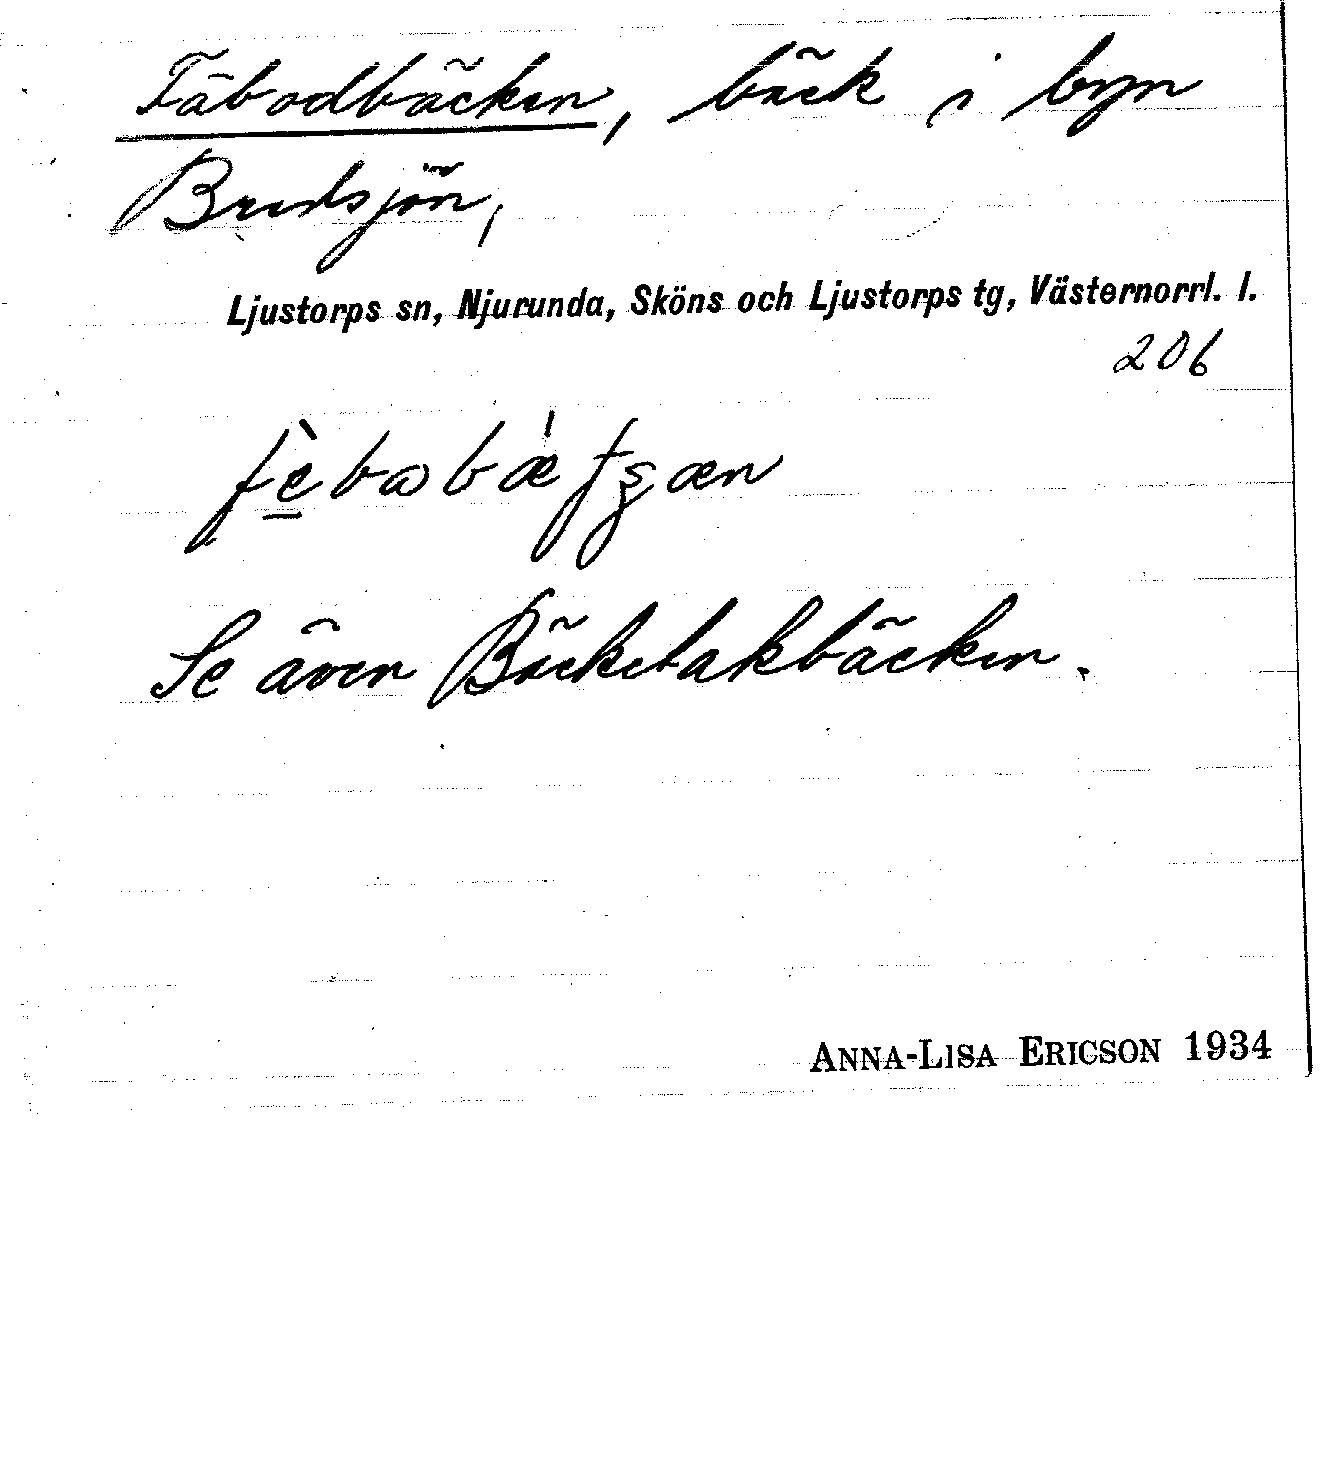 Fäbodbäcken, bäck i byn
Bredsjön,
Ljustorps sn, Njurunda, Sköns och Ljustorps tg, Västernorrl. l.
206
Se även Bäcketakbäcken.
ANNA-LISA ERICSON 1934